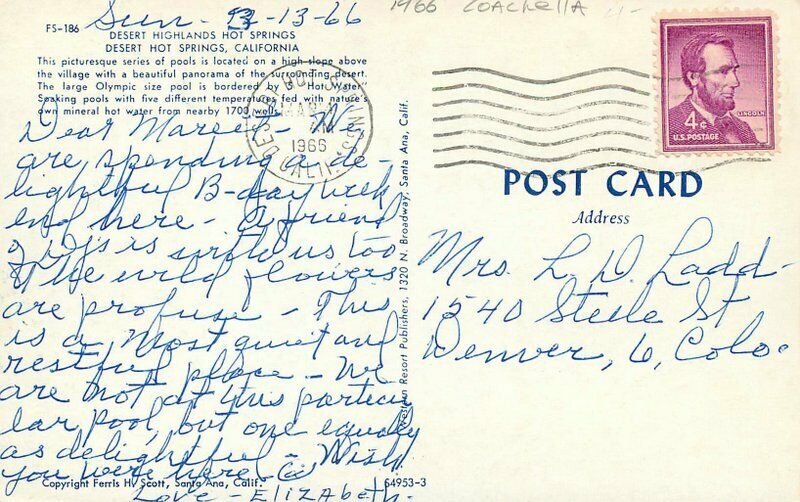 1966 COACHELLA
Sun - 3-13-66
FS-186
DESERT HIGHLANDS HOT SPRINGS
DESERT HOT SPRINGS, CALIFORNIA
This picturesque series of pools is located on a high slope above
the village with a beautiful panorama of the surrounding desert.
The large Olympic size pool is bordered by Hot Water
Soaking pools with five different temperatures fed with nature's
own mineral hot water from nearby 1700 wells.
Dear Marcel - We
are spending a de-
lightful B-day week
end here - A friend
of is with us too
The wild flowers
are profuse - This
is a most quiet and
restful place - We
are not at this particu
lar pool, but one equally
as delightful - Wish
you were here -
Love - Elizabeth.
Copyright Ferris H. Scott, Santa Ana, Calif.
S4953-3
Western Resort Publishers, 1320 N. Broadway, Santa Ana, Calif.
DESERT HOT SPRINGS, CALIF.
MAR
1966
LINCOLN
4¢
U.S. POSTAGE
POST CARD
Address
Mrs. L. D. Ladd -
1540 Steele St
Denver, 6, Colo.